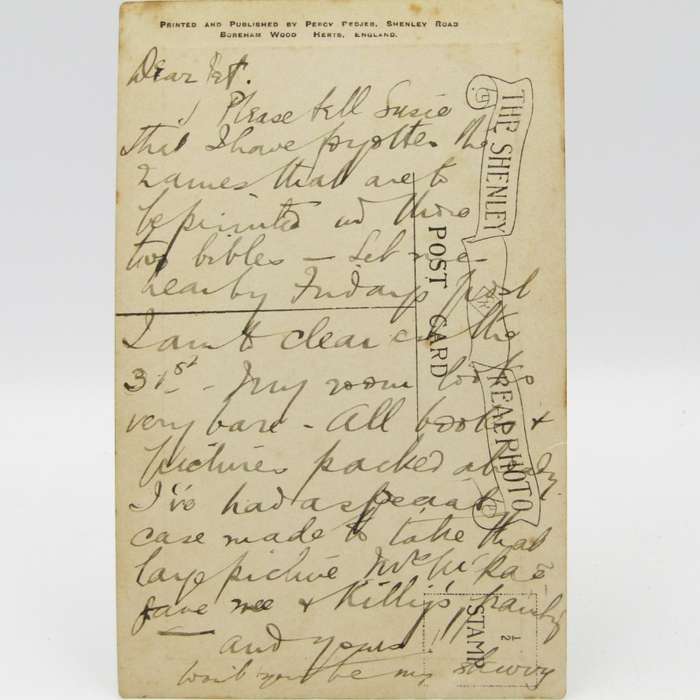 PRINTED AND PUBLISHED BY PERCY PEDJER, SHENLEY ROAD
BOREHAM WOOD HERTS, ENGLAND.
Dear
Please tell Susie
that I have forgotten the
names that are to
be printed in those
two bibles - Let me
hear by Fridays post
I am to clear on the
31st - My room looks
very bare - All books &
pictures packed already.
I've had a special
case made to take that
large picture Mrs McRae
gave me & Killy's
and yours
wont you be my
THE SHENLEY
REAL PHOTO
POST CARD
½
STAMP